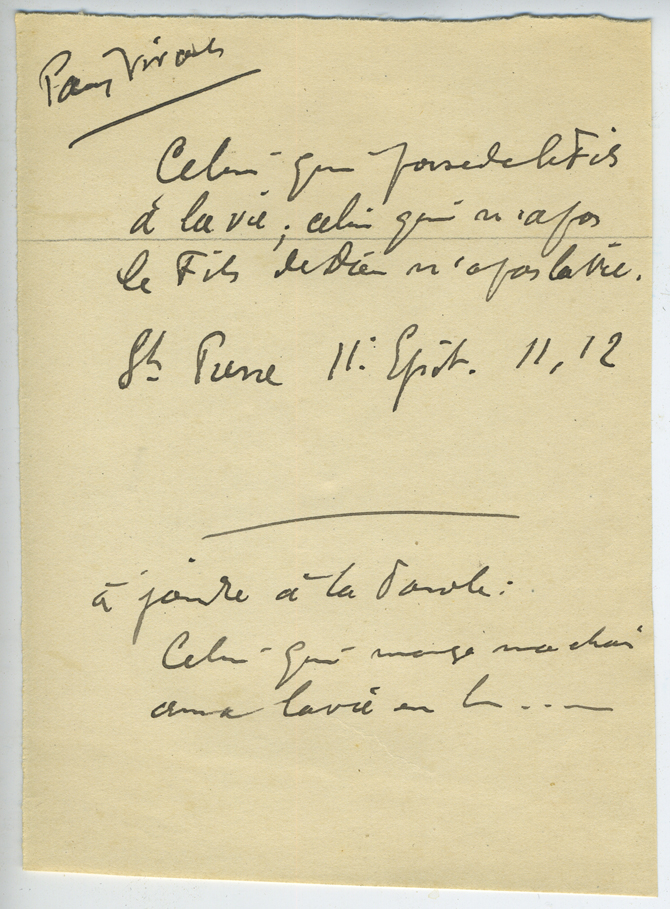 Pain Vivant
Celui qui possede le Fils
a la vie ; celui qui n'a pas
le Fils de Dieu n'a pas la Vie.
St Pierre II. Epit. 11, 12
à joindre à la Parole :
Celui qui mange ma chair
aura la vie en lui ....